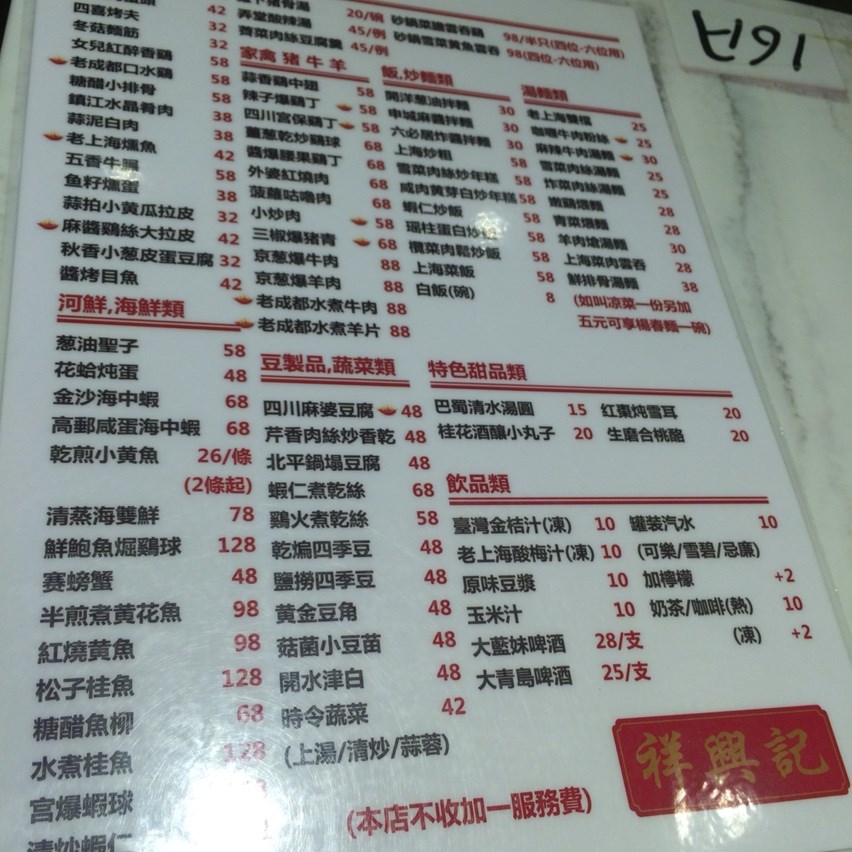 四喜烤夫 42
冬菇麵筋 32
女兒紅醉香鷄 32
老成都口水鷄 58
糖醋小排骨 58
鎮江水晶肴肉 58
蒜泥白肉 38
老上海燻魚 38
五香牛𦟌 42
魚籽燻蛋 58
蒜拍小黄瓜拉皮 38
麻醬鷄絲大拉皮 32
秋香小葱皮蛋豆腐 42
醬烤目魚 32
42
河鮮,海鮮類
葱油聖子 58
花蛤炖蛋 48
金沙海中蝦 68
高郵咸蛋海中蝦 68
乾煎小黄魚 26/條
(2條起)
清蒸海雙鮮 78
鮮鮑魚焗鷄球 128
賽螃蟹 48
半煎煮黄花魚 98
紅燒黄魚 98
松子桂魚 128
糖醋魚柳 68
水煮桂魚 128
宮爆蝦球
清炒蝦仁
猪骨湯 20/碗
弄堂酸辣湯 45/例
薺菜肉絲豆腐羹 45/例
砂鍋菜膽雲吞鷄 98/半只(四位-六位用)
砂鍋雪菜黄魚雲吞 98(四位-六位用)
家禽猪牛羊
蒜香鷄中翅 58
辣子爆鷄丁 58
四川宮保鷄丁 58
薑葱乾炒鷄球 68
醬爆腰果鷄丁 68
外婆紅燒肉 68
菠蘿咕嚕肉 68
小炒肉 58
三椒爆猪青 68
京葱爆牛肉 88
京葱爆羊肉 88
老成都水煮牛肉 88
老成都水煮羊片 88
飯,炒麵類
開洋葱油拌麵 30
申城麻醬拌麵 30
六必居炸醬拌麵 30
上海炒粗 58
雪菜肉絲炒年糕 58
咸肉黄芽白炒年糕 58
蝦仁炒飯 58
瑶柱蛋白炒飯 58
欖菜肉鬆炒飯 58
上海菜飯 58
白飯(碗) 8
湯麵類
老上海雙檔 25
咖喱牛肉粉絲 25
麻辣牛肉湯麵 30
雪菜肉絲湯麵 25
炸菜肉絲湯麵 25
嫩鷄煨麵 28
青菜煨麵 28
羊肉熗湯麵 30
上海菜肉雲吞 28
鮮排骨湯麵 38
(如叫凉菜一份另加
五元可享楊春麵一碗)
豆製品,蔬菜類
四川麻婆豆腐 48
芹香肉絲炒香乾 48
北平鍋塌豆腐 48
蝦仁煮乾絲 68
鷄火煮乾絲 58
乾煸四季豆 48
鹽撈四季豆 48
黄金豆角 48
菇菌小豆苗 48
開水津白 48
時令蔬菜 42
(上湯/清炒/蒜蓉)
特色甜品類
巴蜀清水湯圓 15
紅棗炖雪耳 20
桂花酒釀小丸子 20
生磨合桃酪 20
飲品類
臺灣金桔汁(凍) 10
罐装汽水 10
老上海酸梅汁(凍) 10
(可樂/雪碧/忌廉)
原味豆漿 10
加檸檬 +2
玉米汁 10
奶茶/咖啡(熱) 10
大藍妹啤酒 28/支
(凍) +2
大青島啤酒 25/支
祥興記
(本店不收加一服務費)